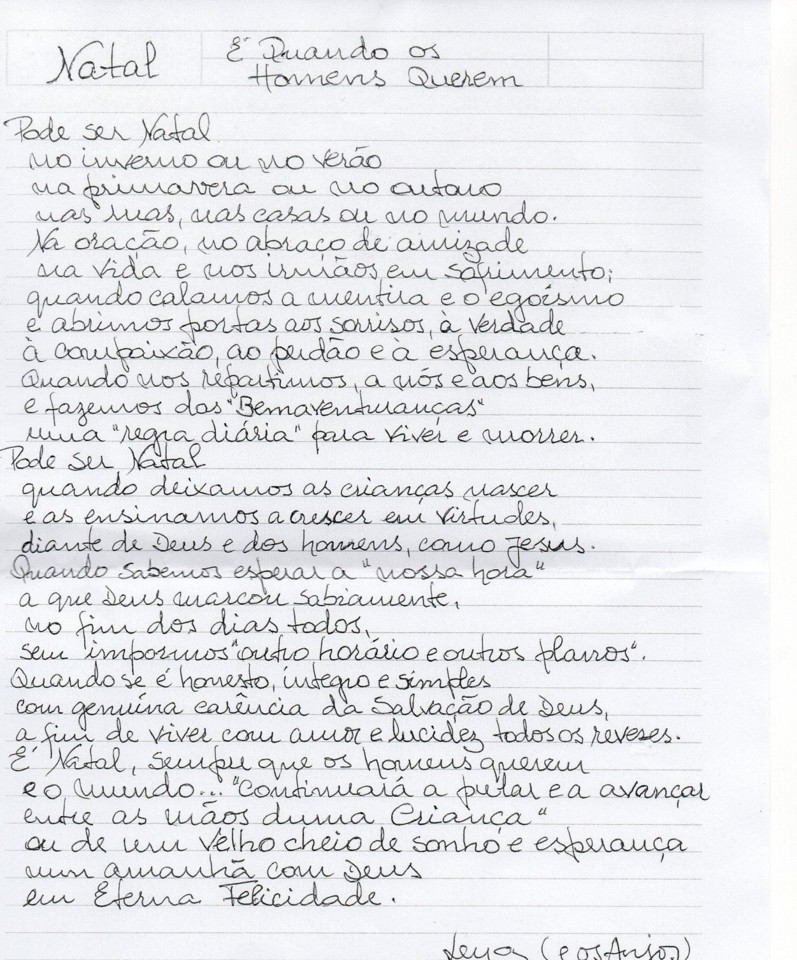 Natal
É Quando os
Homens Querem
Pode ser Natal
no inverno ou no verão
na primavera ou no outono
nas ruas, nas casas ou no mundo.
Na oração, no abraço de amizade
na vida e nos irmãos em sofrimento;
quando calamos a mentira e o egoísmo
e abrimos portas aos sorrisos, à verdade
à compaixão, ao perdão e à esperança.
Quando nos repartimos, a nós e aos bens,
e fazemos das "Bemaventuranças"
uma "regra diária" para viver e morrer.
Pode ser Natal
quando deixamos as crianças nascer
e as ensinamos a crescer em virtudes,
diante de Deus e dos homens, como Jesus.
Quando sabemos esperar a "nossa hora"
a que Deus marcou sabiamente,
no fim dos dias todos,
sem impormos "outro horário e outros planos".
Quando se é honesto, íntegro e simples
com genuína carência da Salvação de Deus,
a fim de viver com amor e lucidez todos os reveses.
É Natal, sempre que os homens querem
e o mundo... "Continuará a pular e a avançar
entre as mãos duma Criança"
ou de um Velho cheio de sonho e esperança
num amanhã com Deus
em Eterna Felicidade.
(e os Anjos)